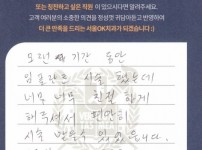 또는 칭찬하고 싶은 직원이 있으시다면 알려주세요.
고객 여러분의 소중한 의견을 정성껏 귀담아듣고 반영하여
더 큰 만족을 드리는 서울OK치과가 되겠습니다 :)
오랜 기간 동안
임플란트 시술 했는데
너무 너무 친절 하게
해주셔서 편안히
시술 받을수 있었습니다.